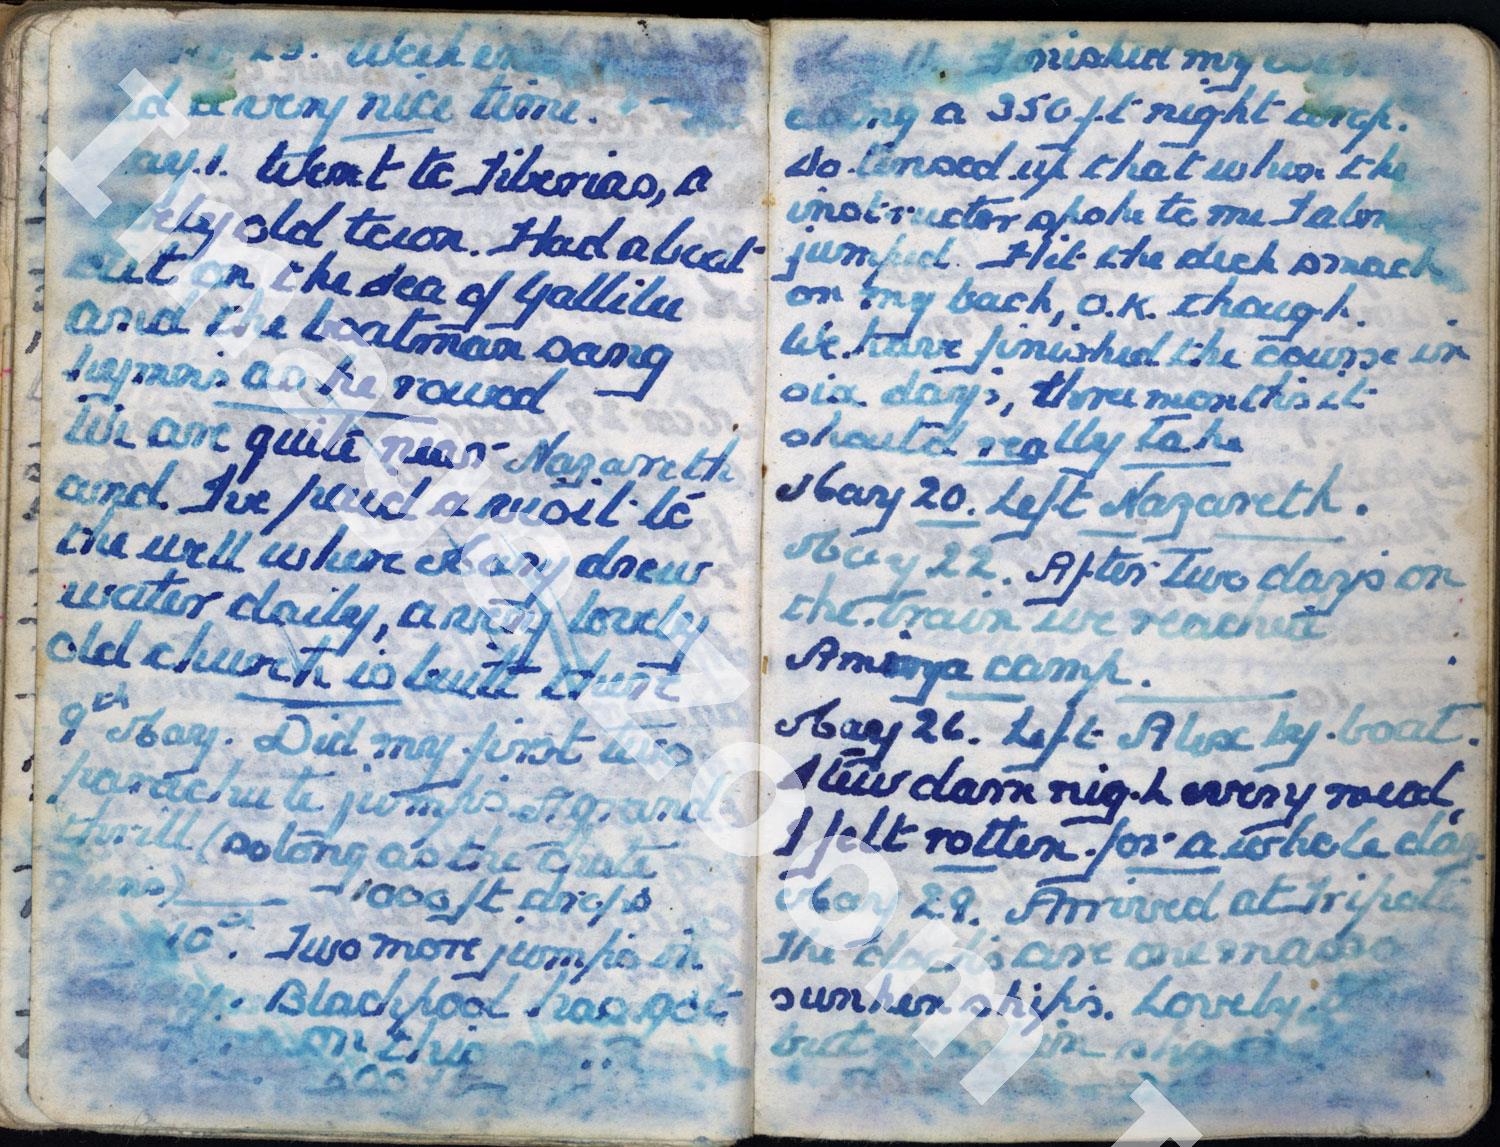 29. Week en
d a very nice time.
ay. 1. Went to Tiberias, a
old town. Had a boat
out on the sea of Gallilee
and the boatman sang
hymns as he rowed
We are quite near Nazareth
and I've paid a visit to
the well where Mary drew
water daily, a very lovely
old church is built there
9th May. Did my first two
parachute jumps. A grand
thrill (so long as the chute
opens) 1000 ft. drops
10th. Two more jumps in.
Blackpool has got
on this
500 ft
11. Finished my
doing a 350 ft night drop.
So tensed up that when the
instructor spoke to me I almost
jumped. Hit the deck smack
on my back, O.K. though.
We have finished the course in
six days, three months it
should really take
May 20. Left Nazareth.
May 22. After two days on
the train we reached
Amirya camp.
May 26. Left Alex by boat.
Stew dam nigh every meal,
I felt rotten for a whole day.
May 29. Arrived at Tripoli
The docks are one mass o
sunken ships. Lovely
but in
Imagevortex